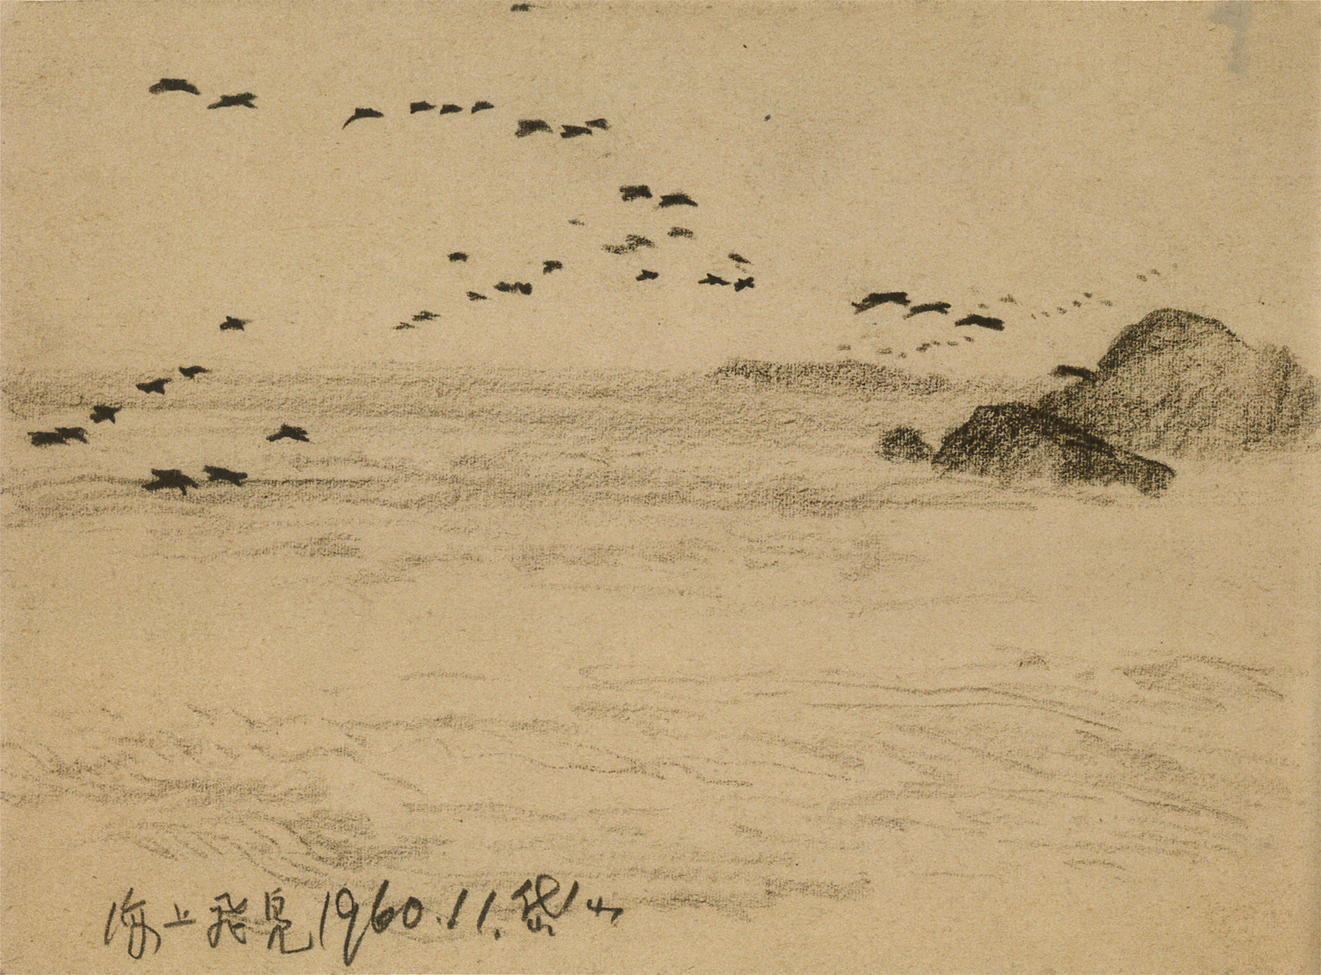 海上飛鳧1960.11.岱山